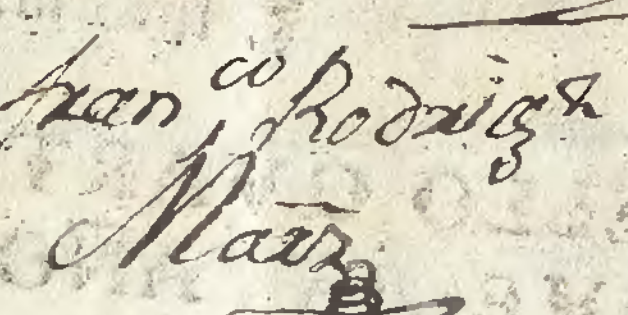 Fran^co Rodrig^z
Marz